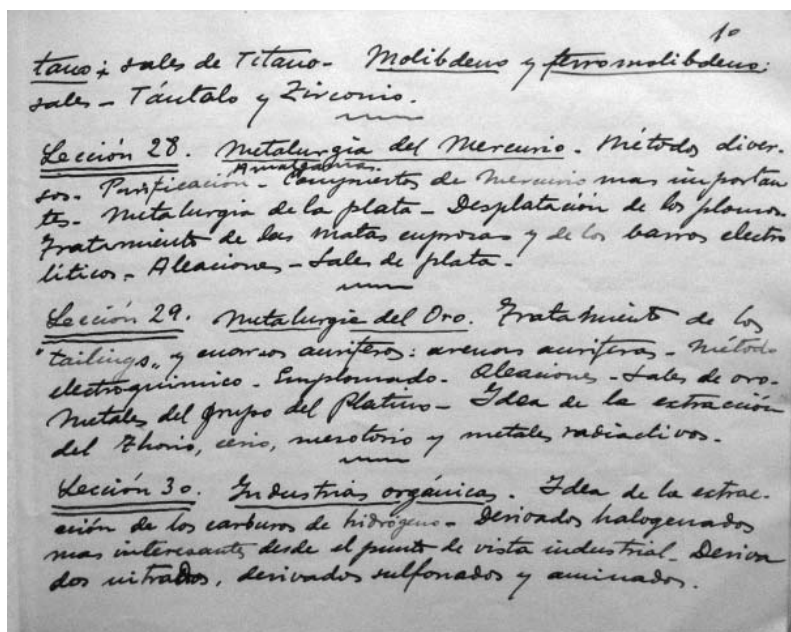 10
tano; sales de Titano- Molibdeno y ferromolibdeno:
sales- Tántalo y Zirconio.
Lección 28. Metalurgia del Mercurio. Métodos diver-
Amalgamas.
sos. Purificación- Compuestos de Mercurio mas importan
tes- Metalurgia de la plata- Desplatación de los plomos.
Tratamiento de las matas cuprosas y de los barros electro
líticos- Aleaciones- Sales de plata-
Lección 29. Metalurgia del Oro. Tratamiento de los
"tailings„ y cuarzos auríferos: arenas auríferas- Método
electroquímico- Emplomado- Aleaciones- Sales de oro-
Metales del grupo del Platino- Idea de la extracción
del Thorio, cerio, mesotorio y metales radiactivos-
Lección 30. Industrias orgánicas. Idea de la extrac-
ción de los carburos de hidrógeno- Derivados halogenados
mas interesantes desde el punto de vista industrial- Deriva
dos nitrados, derivados sulfonados y aminados.